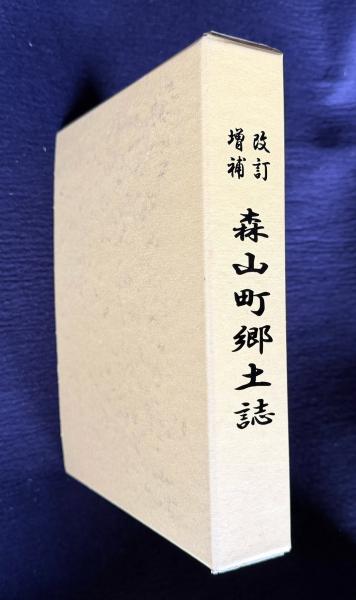 改訂
増補
森山町郷土誌